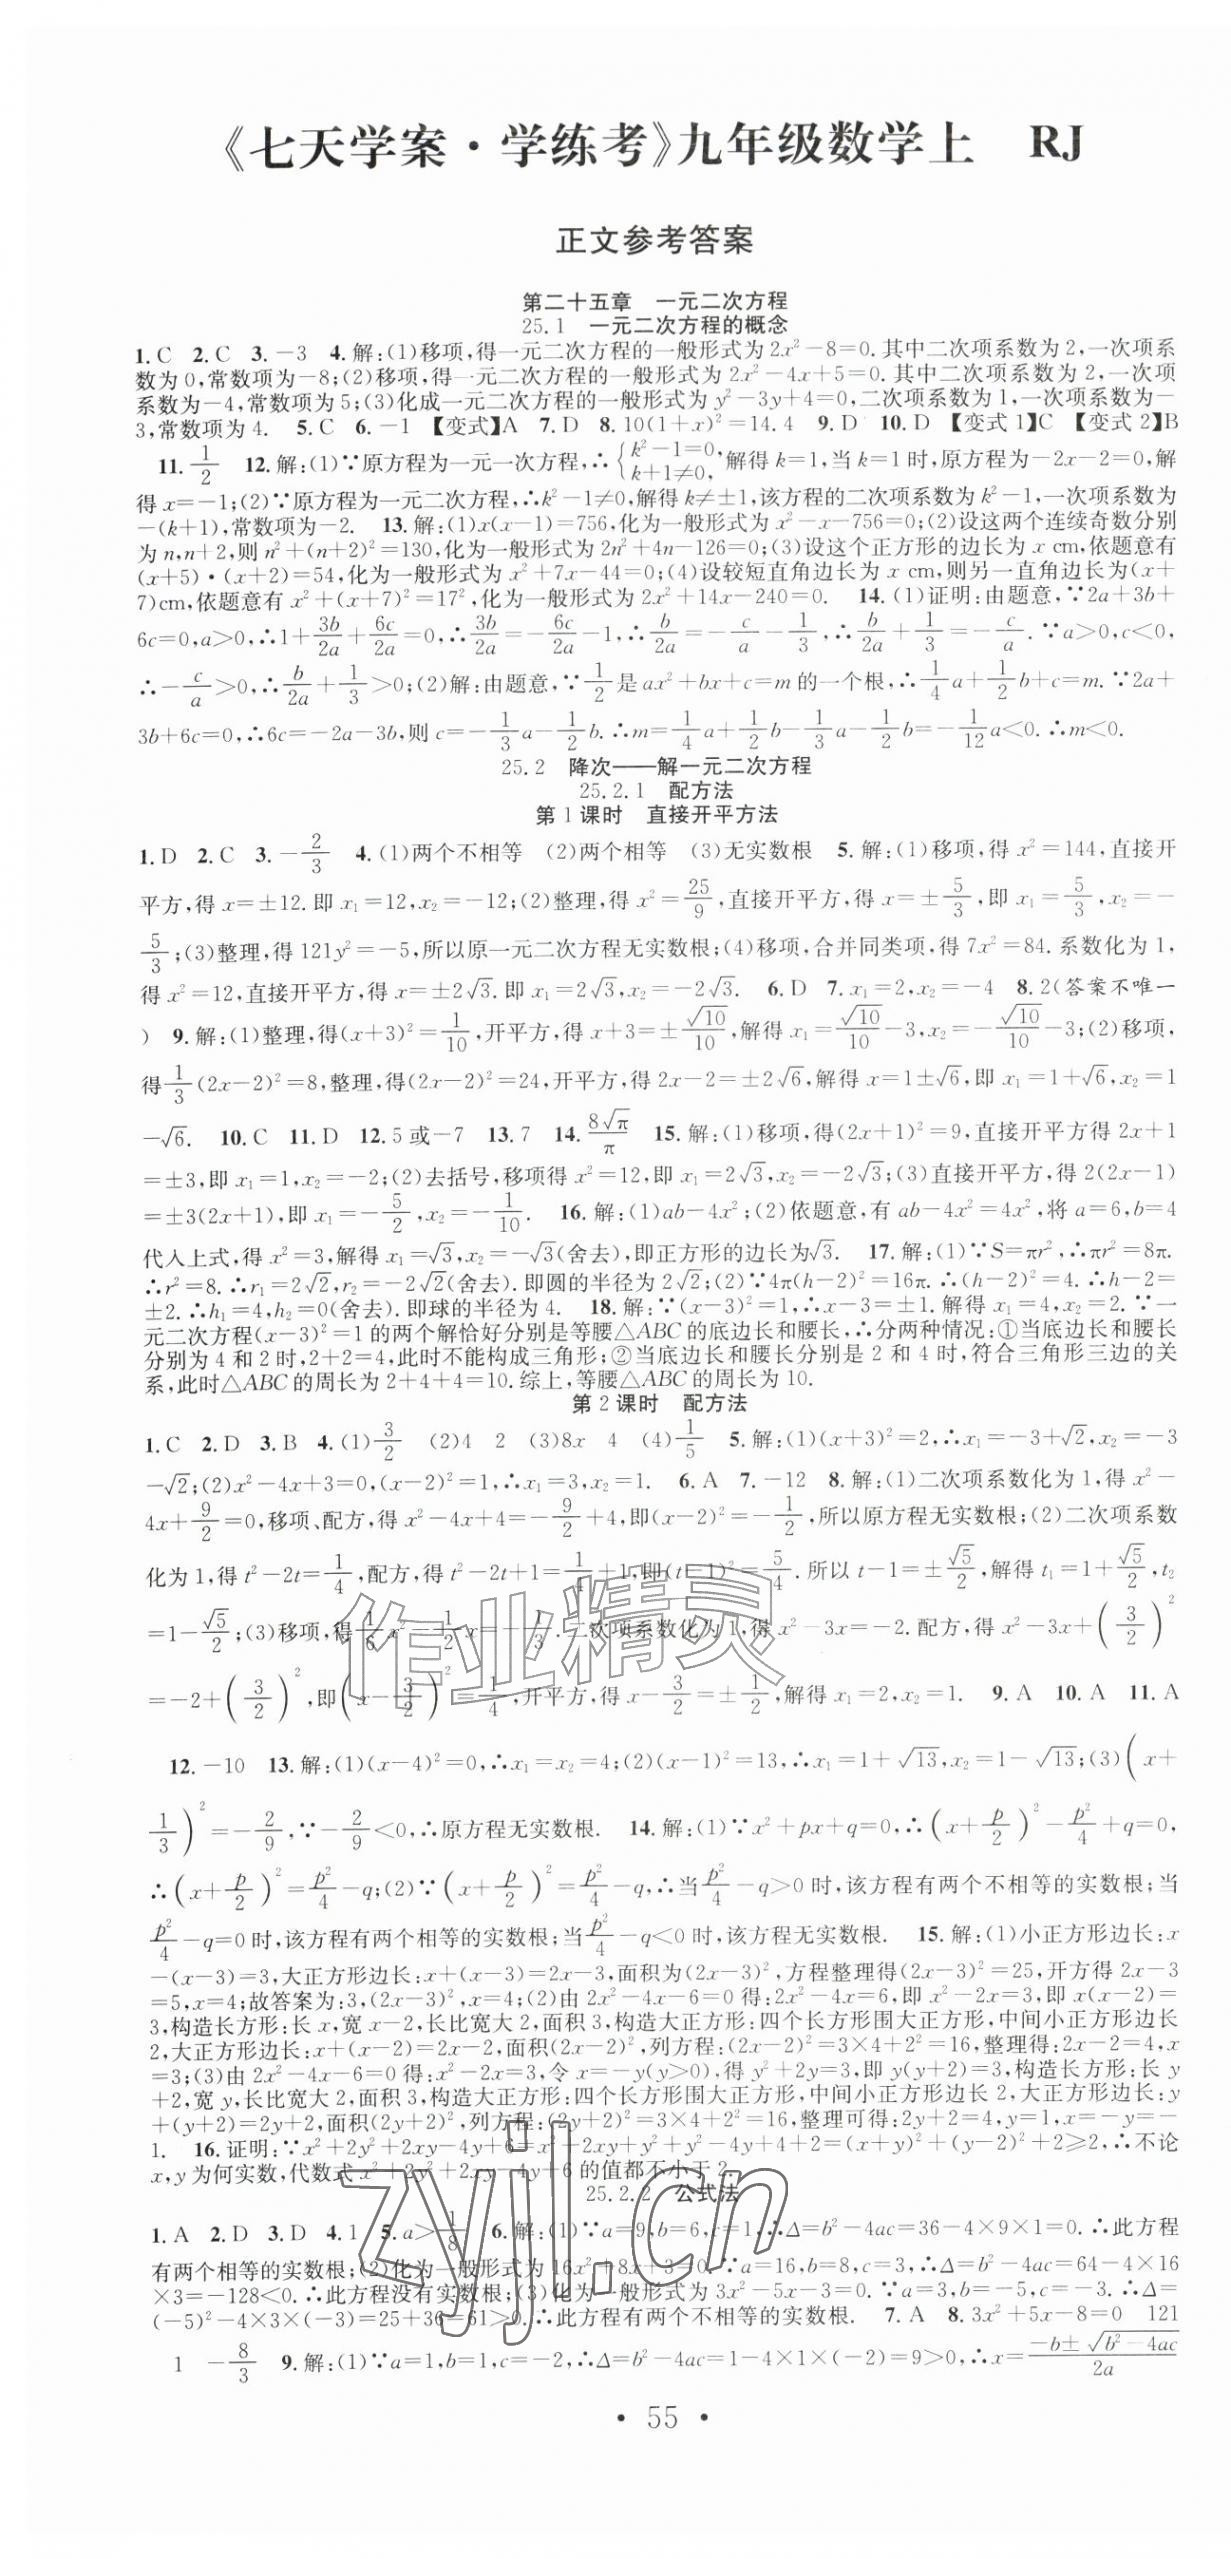 《七天学案·学练考》九年级数学上　RJ
正文参考答案
第二十五章　一元二次方程
25.1　一元二次方程的概念
1.C　2.C　3.－3　4.解:(1)移项,得一元二次方程的一般形式为2x²－8＝0.其中二次项系数为2,一次项系
数为0,常数项为－8;(2)移项,得一元二次方程的一般形式为2x²－4x＋5＝0.其中二次项系数为2,一次项
系数为－4,常数项为5;(3)化成一元二次方程的一般形式为y²－3y＋4＝0,二次项系数为1,一次项系数为－
3,常数项为4.　5.C　6.－1　【变式】A　7.D　8.10(1＋x)²＝14.4　9.D　10.D　【变式1】C　【变式2】B
11.1/2　12.解:(1)∵原方程为一元一次方程,∴{k²－1＝0,k＋1≠0,解得k＝1,当k＝1时,原方程为－2x－2＝0,解
得x＝－1;(2)∵原方程为一元二次方程,∴k²－1≠0,解得k≠±1,该方程的二次项系数为k²－1,一次项系数为
－(k＋1),常数项为－2.　13.解:(1)x(x－1)＝756,化为一般形式为x²－x－756＝0;(2)设这两个连续奇数分别
为n,n＋2,则n²＋(n＋2)²＝130,化为一般形式为2n²＋4n－126＝0;(3)设这个正方形的边长为x cm,依题意有
(x＋5)·(x＋2)＝54,化为一般形式为x²＋7x－44＝0;(4)设较短直角边长为x cm,则另一直角边长为(x＋
7)cm,依题意有x²＋(x＋7)²＝17²,化为一般形式为2x²＋14x－240＝0.　14.(1)证明:由题意,∵2a＋3b＋
6c＝0,a＞0,∴1＋3b/2a＋6c/2a＝0,∴3b/2a＝－6c/2a－1,∴b/2a＝－c/a－1/3,∴b/2a＋1/3＝－c/a.∵a＞0,c＜0,
∴－c/a＞0,∴b/2a＋1/3＞0;(2)解:由题意,∵1/2是ax²＋bx＋c＝m的一个根,∴1/4a＋1/2b＋c＝m.∵2a＋
3b＋6c＝0,∴6c＝－2a－3b,则c＝－1/3a－1/2b.∴m＝1/4a＋1/2b－1/3a－1/2b＝－1/12a＜0.∴m＜0.
25.2　降次——解一元二次方程
25.2.1　配方法
第1课时　直接开平方法
1.D　2.C　3.－2/3　4.(1)两个不相等　(2)两个相等　(3)无实数根　5.解:(1)移项,得x²＝144,直接开
平方,得x＝±12.即x₁＝12,x₂＝－12;(2)整理,得x²＝25/9,直接开平方,得x＝±5/3,即x₁＝5/3,x₂＝－
5/3;(3)整理,得121y²＝－5,所以原一元二次方程无实数根;(4)移项,合并同类项,得7x²＝84.系数化为1,
得x²＝12,直接开平方,得x＝±2√3.即x₁＝2√3,x₂＝－2√3.　6.D　7.x₁＝2,x₂＝－4　8.2(答案不唯一
)　9.解:(1)整理,得(x＋3)²＝1/10,开平方,得x＋3＝±√10/10,解得x₁＝√10/10－3,x₂＝－√10/10－3;(2)移项,
得1/3(2x－2)²＝8,整理,得(2x－2)²＝24,开平方,得2x－2＝±2√6,解得x＝1±√6,即x₁＝1＋√6,x₂＝1
－√6.　10.C　11.D　12.5或－7　13.7　14.8√π/π　15.解:(1)移项,得(2x＋1)²＝9,直接开平方得2x＋1
＝±3,即x₁＝1,x₂＝－2;(2)去括号,移项得x²＝12,即x₁＝2√3,x₂＝－2√3;(3)直接开平方,得2(2x－1)
＝±3(2x＋1),即x₁＝－5/2,x₂＝－1/10.　16.解:(1)ab－4x²;(2)依题意,有ab－4x²＝4x²,将a＝6,b＝4
代入上式,得x²＝3,解得x₁＝√3,x₂＝－√3(舍去),即正方形的边长为√3.　17.解:(1)∵S＝πr²,∴πr²＝8π.
∴r²＝8.∴r₁＝2√2,r₂＝－2√2(舍去).即圆的半径为2√2;(2)∵4π(h－2)²＝16π.∴(h－2)²＝4.∴h－2＝
±2.∴h₁＝4,h₂＝0(舍去).即球的半径为4.　18.解:∵(x－3)²＝1,∴x－3＝±1.解得x₁＝4,x₂＝2.∵一
元二次方程(x－3)²＝1的两个解恰好分别是等腰△ABC的底边长和腰长,∴分两种情况:①当底边长和腰长
分别为4和2时,2＋2＝4,此时不能构成三角形;②当底边长和腰长分别是2和4时,符合三角形三边的关
系,此时△ABC的周长为2＋4＋4＝10.综上,等腰△ABC的周长为10.
第2课时　配方法
1.C　2.D　3.B　4.(1)3/2　(2)4　2　(3)8x　4　(4)1/5　5.解:(1)(x＋3)²＝2,∴x₁＝－3＋√2,x₂＝－3
－√2;(2)x²－4x＋3＝0,(x－2)²＝1,∴x₁＝3,x₂＝1.　6.A　7.－12　8.解:(1)二次项系数化为1,得x²－
4x＋9/2＝0,移项、配方,得x²－4x＋4＝－9/2＋4,即(x－2)²＝－1/2,所以原方程无实数根;(2)二次项系数
化为1,得t²－2t＝1/4,配方,得t²－2t＋1＝1/4＋1,即(t－1)²＝5/4.所以t－1＝±√5/2,解得t₁＝1＋√5/2,t₂
＝1－√5/2;(3)移项,得1/6x²－1/2x＝－1/3.二次项系数化为1,得x²－3x＝－2.配方,得x²－3x＋(3/2)²
＝－2＋(3/2)²,即(x－3/2)²＝1/4,开平方,得x－3/2＝±1/2,解得x₁＝2,x₂＝1.　9.A　10.A　11.A
12.－10　13.解:(1)(x－4)²＝0,∴x₁＝x₂＝4;(2)(x－1)²＝13,∴x₁＝1＋√13,x₂＝1－√13;(3)(x＋
1/3)²＝－2/9,∵－2/9＜0,∴原方程无实数根.　14.解:(1)∵x²＋px＋q＝0,∴(x＋p/2)²－p²/4＋q＝0,
∴(x＋p/2)²＝p²/4－q;(2)∵(x＋p/2)²＝p²/4－q,∴当p²/4－q＞0时,该方程有两个不相等的实数根;当
p²/4－q＝0时,该方程有两个相等的实数根;当p²/4－q＜0时,该方程无实数根.　15.解:(1)小正方形边长:x
－(x－3)＝3,大正方形边长:x＋(x－3)＝2x－3,面积为(2x－3)²,方程整理得(2x－3)²＝25,开方得2x－3
＝5,x＝4;故答案为:3,(2x－3)²,x＝4;(2)由2x²－4x－6＝0得:2x²－4x＝6,即x²－2x＝3,即x(x－2)＝
3,构造长方形:长x,宽x－2,长比宽大2,面积3,构造大正方形:四个长方形围大正方形,中间小正方形边长
2,大正方形边长:x＋(x－2)＝2x－2,面积(2x－2)²,列方程:(2x－2)²＝3×4＋2²＝16,整理得:2x－2＝4,x
＝3;(3)由2x²－4x－6＝0得:x²－2x＝3,令x＝－y(y＞0),得y²＋2y＝3,即y(y＋2)＝3,构造长方形:长y
＋2,宽y,长比宽大2,面积3,构造大正方形:四个长方形围大正方形,中间小正方形边长2,大正方形边长:y
＋(y＋2)＝2y＋2,面积(2y＋2)²,列方程:(2y＋2)²＝3×4＋2²＝16,整理可得:2y＋2＝4,y＝1,x＝－y＝－
1.　16.证明:∵x²＋2y²＋2xy－4y＋6＝x²＋2xy＋y²＋y²－4y＋4＋2＝(x＋y)²＋(y－2)²＋2≥2,∴不论
x,y为何实数,代数式x²＋2y²＋2xy－4y＋6的值都不小于2.
25.2.2　公式法
1.A　2.D　3.D　4.1　5.a＞1/8　6.解:(1)∵a＝9,b＝6,c＝1,∴Δ＝b²－4ac＝36－4×9×1＝0.∴此方程
有两个相等的实数根;(2)化为一般形式为16x²＋8x＋3＝0.∵a＝16,b＝8,c＝3,∴Δ＝b²－4ac＝64－4×16
×3＝－128＜0.∴此方程没有实数根;(3)化为一般形式为3x²－5x－3＝0.∵a＝3,b＝－5,c＝－3.∴Δ＝
(－5)²－4×3×(－3)＝25＋36＝61＞0.∴此方程有两个不相等的实数根.　7.A　8.3x²＋5x－8＝0　121
1　－8/3　9.解:(1)∵a＝1,b＝1,c＝－2,∴Δ＝b²－4ac＝1－4×1×(－2)＝9＞0,∴x＝(－b±√(b²－4ac))/2a
·55·
作业精灵
zyjl.cn